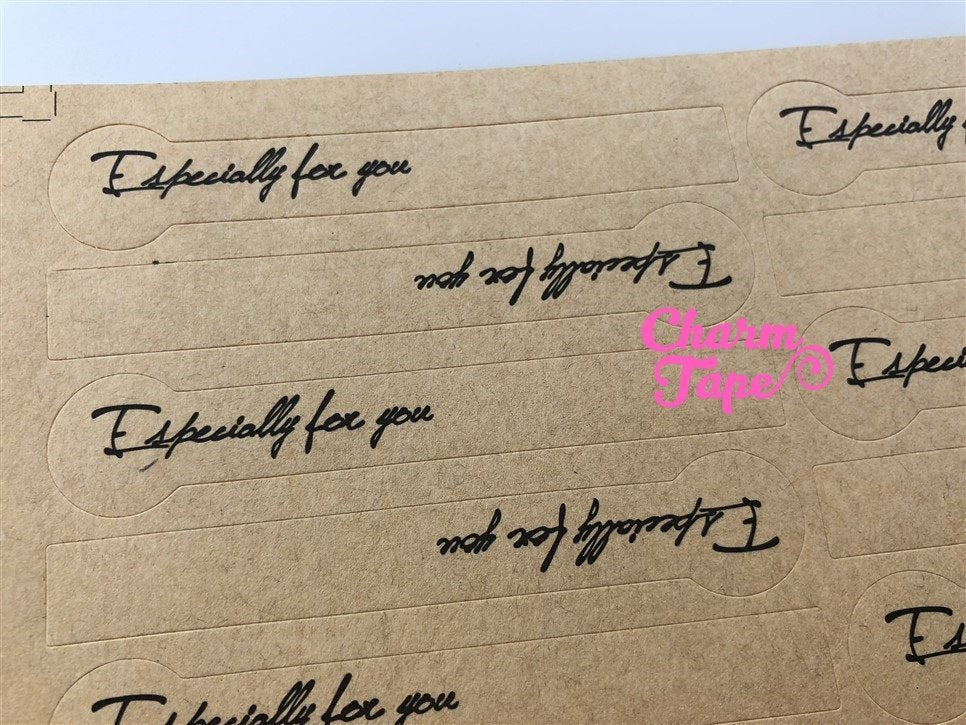 Especially for you
Especially
Especially for you
Charm
Tape
Especially for you
Especially for you
Especially for you